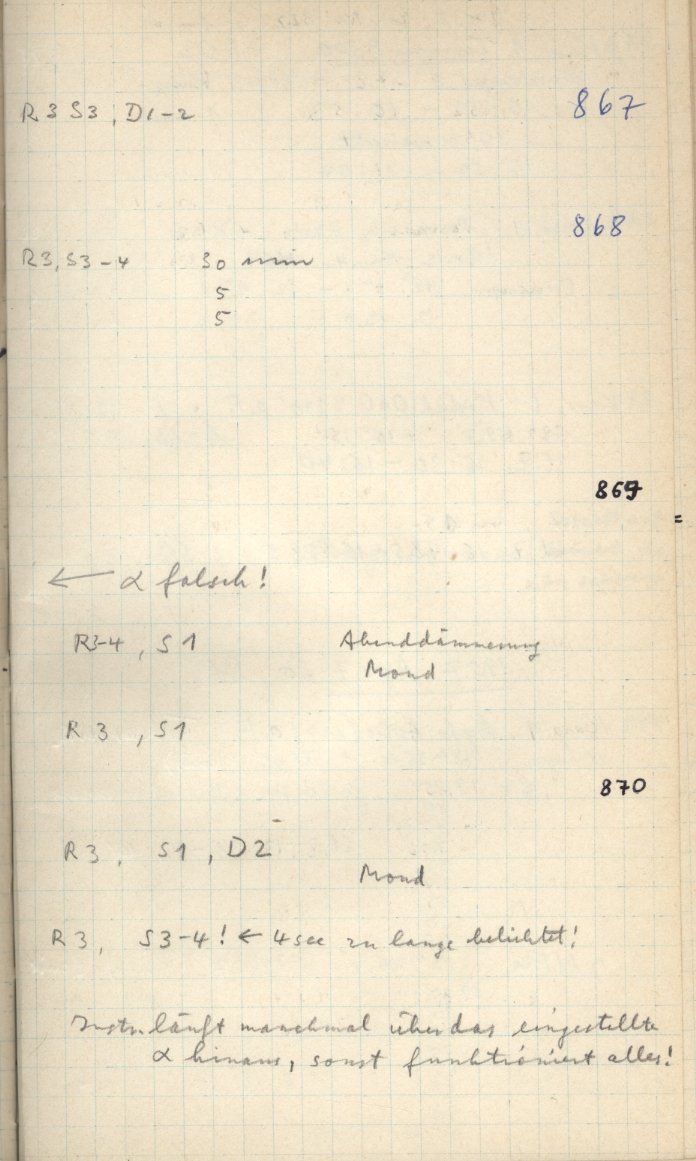 R3 S3, D1-2 867
868
R3, S3-4 30 min
5
5
869
← α falsch!
R3-4, S1 Abenddämmerung
Mond
R3, S1
870
R3, S1, D2
Mond
R3, S3-4! ← 4sec zu lange belichtet!
Instr. läuft manchmal über das eingestellte
α hinaus, sonst funktioniert alles!